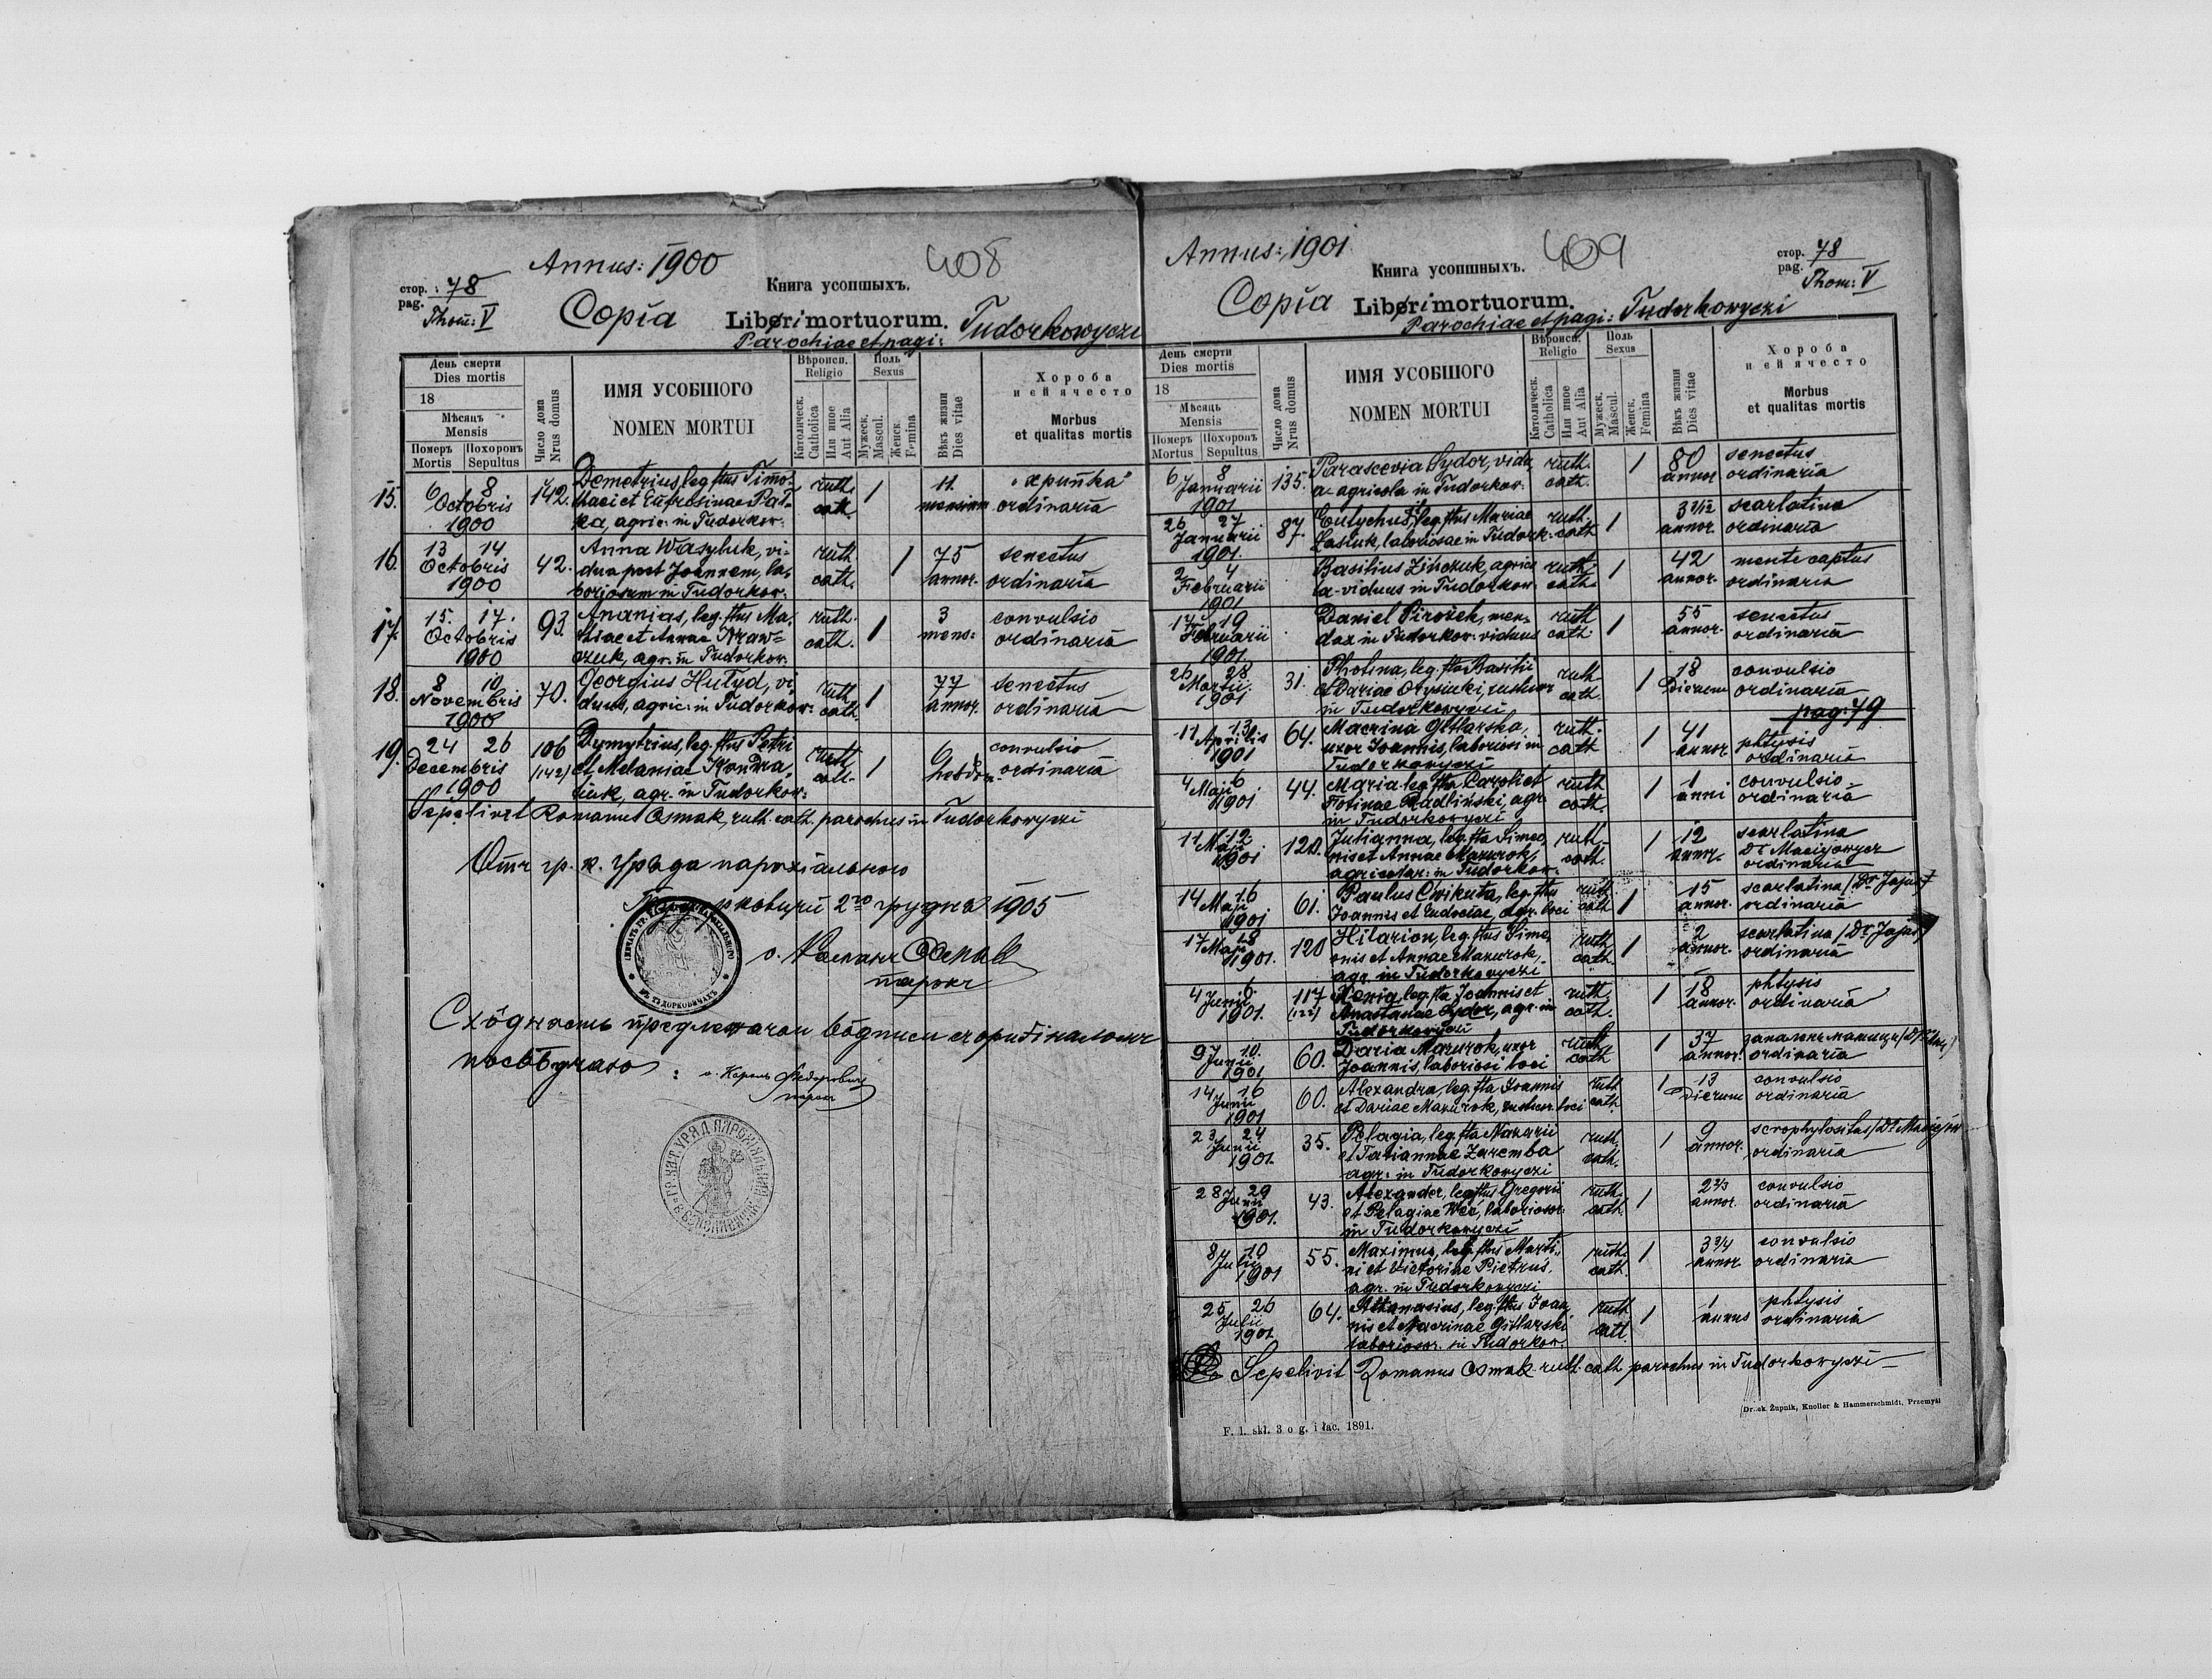 Annus: 1900
408
стор. : 78
pag.
Thom: V
Книга усопшыхъ.
Copia Liberi mortuorum. Tudorkowyczi
Parochiae et pagi:
День смерти
Dies mortis
18
Мѣсяць
Mensis
Померъ
Mortis
Похоронъ
Sepultus
Число дома
Nrus domus
ИМЯ УСОБШОГО
NOMEN MORTUI
Вѣроисп.
Religio
Католическ.
Catholica
Или иное
Aut Alia
Поль
Sexus
Мужеск.
Mascul.
Женск.
Femina
Вѣкъ жизни
Dies vitae
Хороба
и ей ячесто
Morbus
et qualitas mortis
15. 6 8 142. Demetrius, leg. ftus Timo- ruth. 1 11 "хрипка"
Octobris thaei et Eufrosinae Pał- cath. mensium ordinaria
1900 ka, agric. in Tudorkow:
16. 13 14 42. Anna Wasyluk, vi- ruth 1 75 senectus
Octobris dua post Joannem, la- cath. annor. ordinaria
1900 boriosum in Tudorkow:
17. 15. 17. 93. Ananias, leg. ftus Ma- ruth. 1 3 convulsio
Octobris thiae et Annae Kraw- cath. mens: ordinaria
1900 czuk, agr. in Tudorkow:
18. 8 10 70. Georgius Hułyd, vi- ruth 1 77 senectus
Novembris duus, agric: in Tudorkow: cath. annor. ordinaria
1900
19. 24 26 106 Dymytrius, leg. ftus Petri ruth 1 6 convulsio
Decembris (142) et Melaniae Kondra- cath. hebdom. ordinaria
1900 ciuk, agr. in Tudorkow:
Sepelivit Romanus Osmak, ruth. cath. parochus in Tudorkowyczi
Отъ гр. к. Уряда парохіального
рковичи 2го грудня 1905
о. Романъ Осмак
парохъ
Сходность предлежачои водписи съ оригіналомъ
посвѣдчаю :
о. Кароль Федорович
парох
Annus: 1901
409
стор. 78
pag.
Thom: V
Книга усопшныхъ.
Copia Liberi mortuorum.
Parochiae et pagi: Tudorkowyczi
День смерти
Dies mortis
18
Мѣсяць
Mensis
Померъ
Mortus
Похоронъ
Sepultus
Число дома
Nrus domus
ИМЯ УСОБШОГО
NOMEN MORTUI
Вѣроисп.
Religio
Католическ.
Catholica
Или иное
Aut Alia
Поль
Sexus
Мужеск.
Mascul.
Женск.
Femina
Вѣкъ жизни
Dies vitae
Хороба
и ей ячесто
Morbus
et qualitas mortis
6 8 135. Parascevia Sydor, vidu- ruth. 1 80 senectus
Januarii a agricola in Tudorkow: cath. annor ordinaria
1901
26 27 87. Eutychus, leg. ftus Mariae ruth. 1 3 7/12 scarlatina
Januarii Lasiuk, laboriosae in Tudork. cath annor. ordinaria
1901.
2 4 Basilius Zińczuk, agrico- ruth. 1 42 mente captus
Februarii la-viduus in Tudorkow: cath. annor. ordinaria
1901
17 19 Daniel Pirożek, men- ruth 1 55 senectus
Februarii dax in Tudorkow: viduus cath. annor. ordinaria
1901.
26 28 31. Photina, leg. fta Basilii ruth 1 18 convulsio
Martii et Dariae Orysiuki, rusticor cath. Dierum ordinaria
1901 in Tudorkowyczi pag: 79
11 13 64. Macrina Gitlarska, ruth. 1 41 phtysis
Aprilis uxor Joannis, laboriosi in cath annor. ordinaria
1901 Tudorkowyczi
4 6 44. Maria leg. fta Caroli et ruth 1 1 convulsio
Maji Fotinae Radliński, agr. cath. anni ordinaria
1901 in Tudorkowyczi
11 12 120. Julianna, leg. fta Simeo- ruth. 1 12 scarlatina
Maji nis et Annae Mazurok, cath. annor. Dr Maciejowycz
1901 agricolar: in Tudorkow: ordinaria
14 16 61. Paulus Cwikuła, leg. ftus ruth. 1 15 scarlatina (Dr Jajus)
Maji Joannis et Eudociae, agr. loci cath annor. ordinaria
1901
17 18 120 Hilarion, leg. ftus Sime- ruth 1 2 scarlatina (Dr Jajus)
Maji onis et Annae Mazurok, cath. annor. ordinaria
1901. agr. in Tudorkowyczi
4 6 117 Xenia, leg. fta Joannis et ruth. 1 18 phtysis
Junii (122) Anastasiae Sydor, agr. in cath. annor. ordinaria
1901. Tudorkowyczi
9 10. 60. Daria Mazurok, uxor ruth. 1 37
Junii Joannis, laboriosi loci cath annor. ordinaria
1901
14 16 60. Alexandra, leg. fta Joannis ruth 1 13 convulsio
Junii et Dariae Mazurok, rusticor. loci cath. Dierum ordinaria
1901
23 24 35. Pelagia, leg. fta Nazarii ruth. 1 9 scrophylositas
Junii et Tatiannae Zaremba cath. annor. ordinaria
1901. agr. in Tudorkowyczi
28 29 43. Alexander, leg. ftus Gregorii ruth. 1 2 2/3 convulsio
Junii et Pelagiae Weć, laboriosor. cath. annor. ordinaria
1901. in Tudorkowyczi
8 10 55. Maximus, leg. ftus Marti- ruth. 1 3 3/4 convulsio
Julii ni et Victoriae Pietruś, cath. annor ordinaria
1901 agr. in Tudorkowyczi
25 26 64. Athanasius, leg. ftus Joan- ruth 1 1 phtysis
Julii nis et Macrinae Gitlarski cath. annus ordinaria
1901. laboriosor. in Tudorkow.
Sepelivit Romanus Osmak ruth. cath. parochus in Tudorkowyczi
Druk Żupnik, Knoller & Hammerschmidt, Przemyśl
F. 1. skł. 3 o g. i łac. 1891.